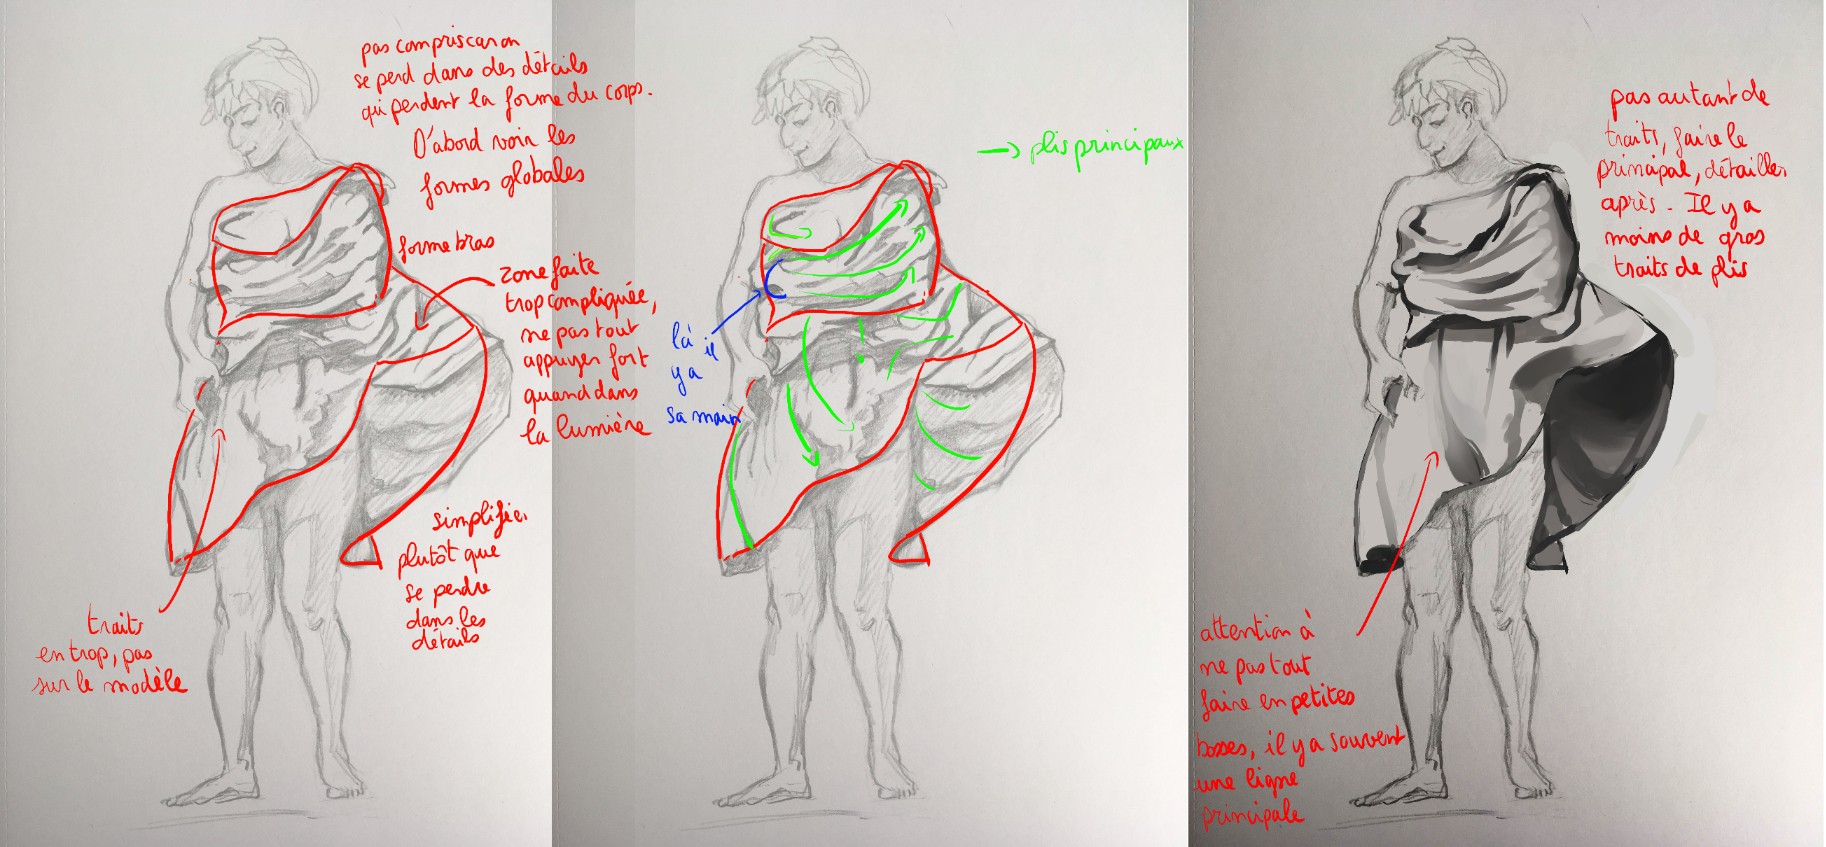 pas compris car on
se perd dans des détails
qui perdent la forme du corps.
D'abord voir les
formes globales
forme bras
zone faite
trop compliquée,
ne pas tout
appuyer fort
quand dans
la lumière
simplifier
plutôt que
se perdre
dans les
détails
traits
en trop, pas
sur le modèle
→ plis principaux
là il
y a
sa main
pas autant de
traits, faire le
principal, détailler
après. Il y a
moins de gros
traits de plis
attention à
ne pas tout
faire en petites
bosses, il y a souvent
une ligne
principale